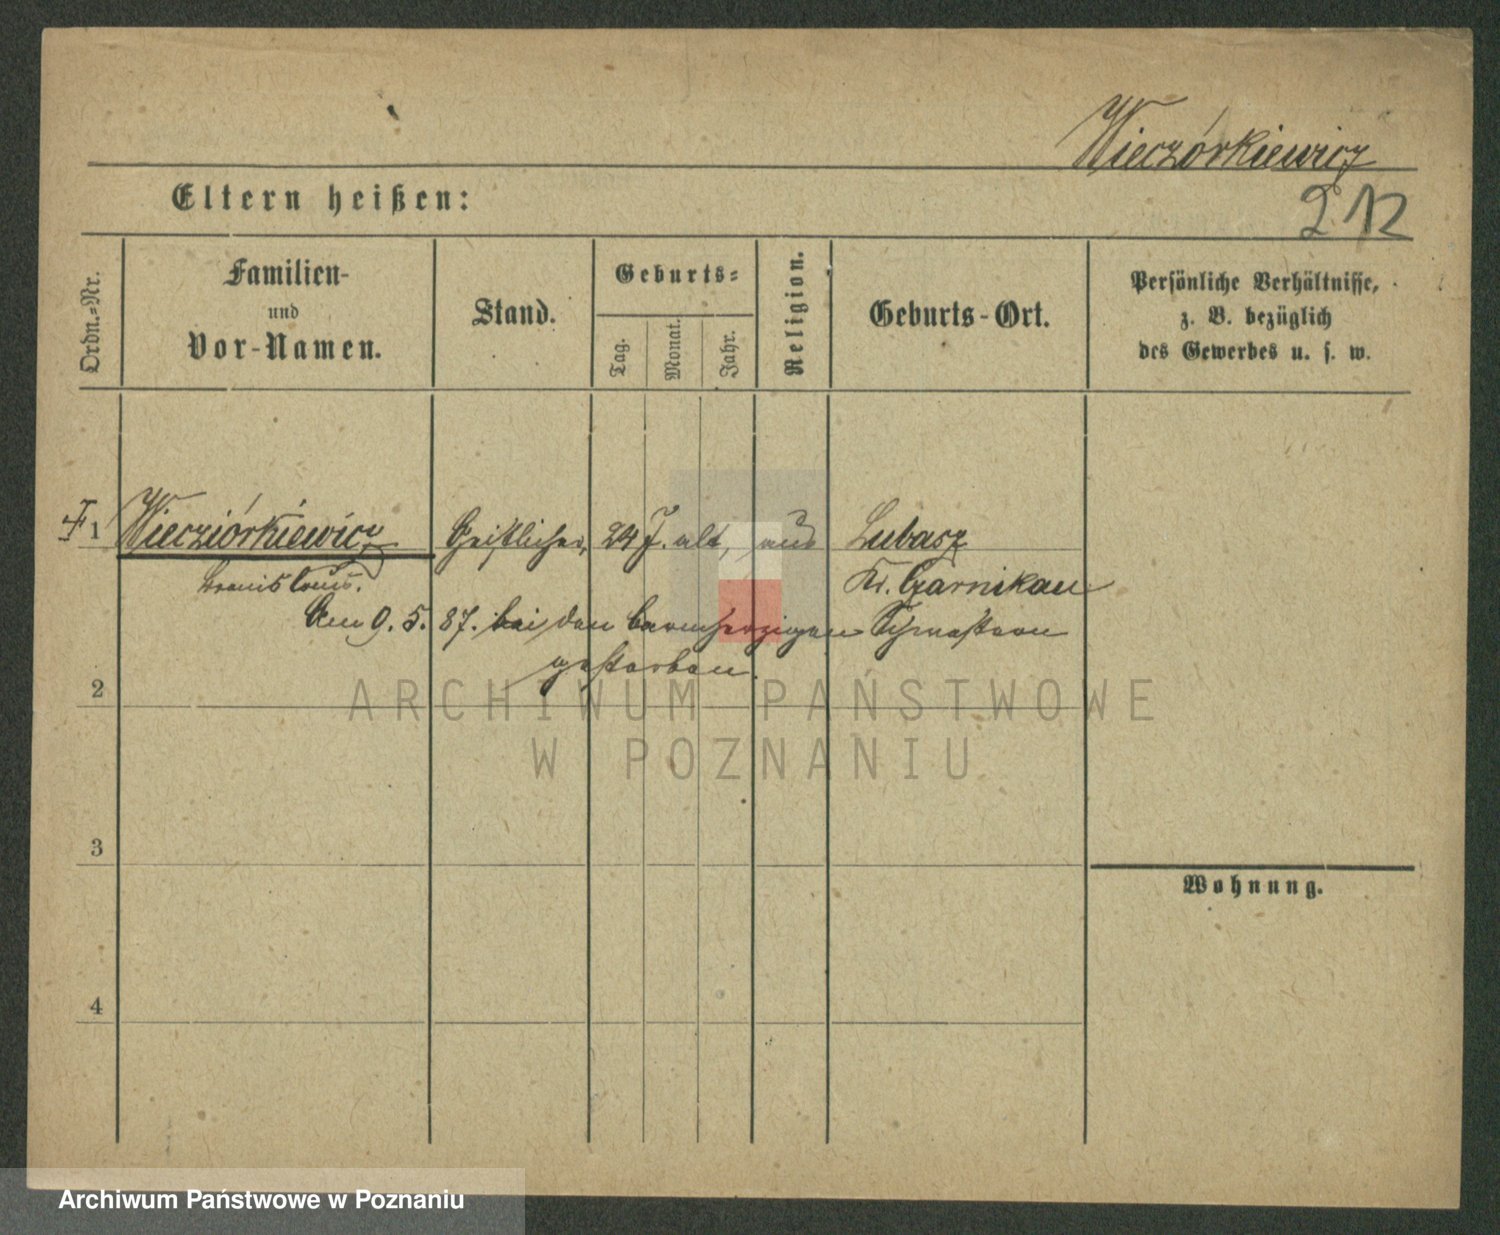 Wieczórkiewicz
Eltern heißen:
212
Ordn.-Nr.
Familien-
und
Vor-Namen.
Stand.
Geburts-
Tag.
Monat.
Jahr.
Religion.
Geburts-Ort.
Persönliche Verhältnisse,
z. B. bezüglich
des Gewerbes u. s. w.
1 Wiecziórkiewicz Geistlicher, 24 J. alt, aus Lubasz
Kr. Czarnikau
Am 9. 5. 87. bei den barmherzigen Schwestern
gestorben.
2
ARCHIWUM PAŃSTWOWE
W POZNANIU
3
Wohnung.
4
Archiwum Państwowe w Poznaniu